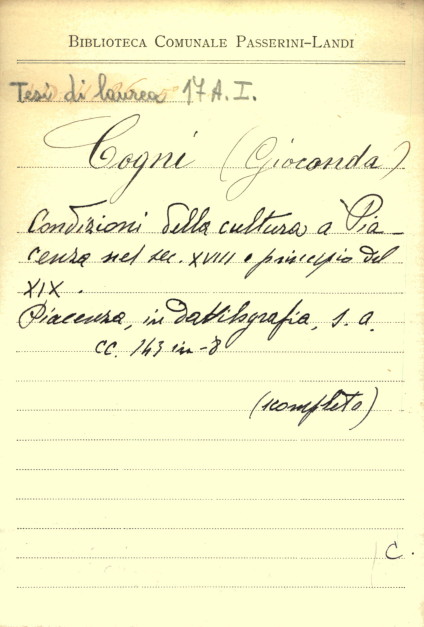 BIBLIOTECA COMUNALE PASSERINI-LANDI
Tesi di laurea 17 A. I.
Cogni (Gioconda)
Condizioni della cultura a Pia-
cenza nel sec. XVIII e principio del
XIX.
Piacenza, in dattilografia, s. a.
cc. 143 in-8
(completo)
C.